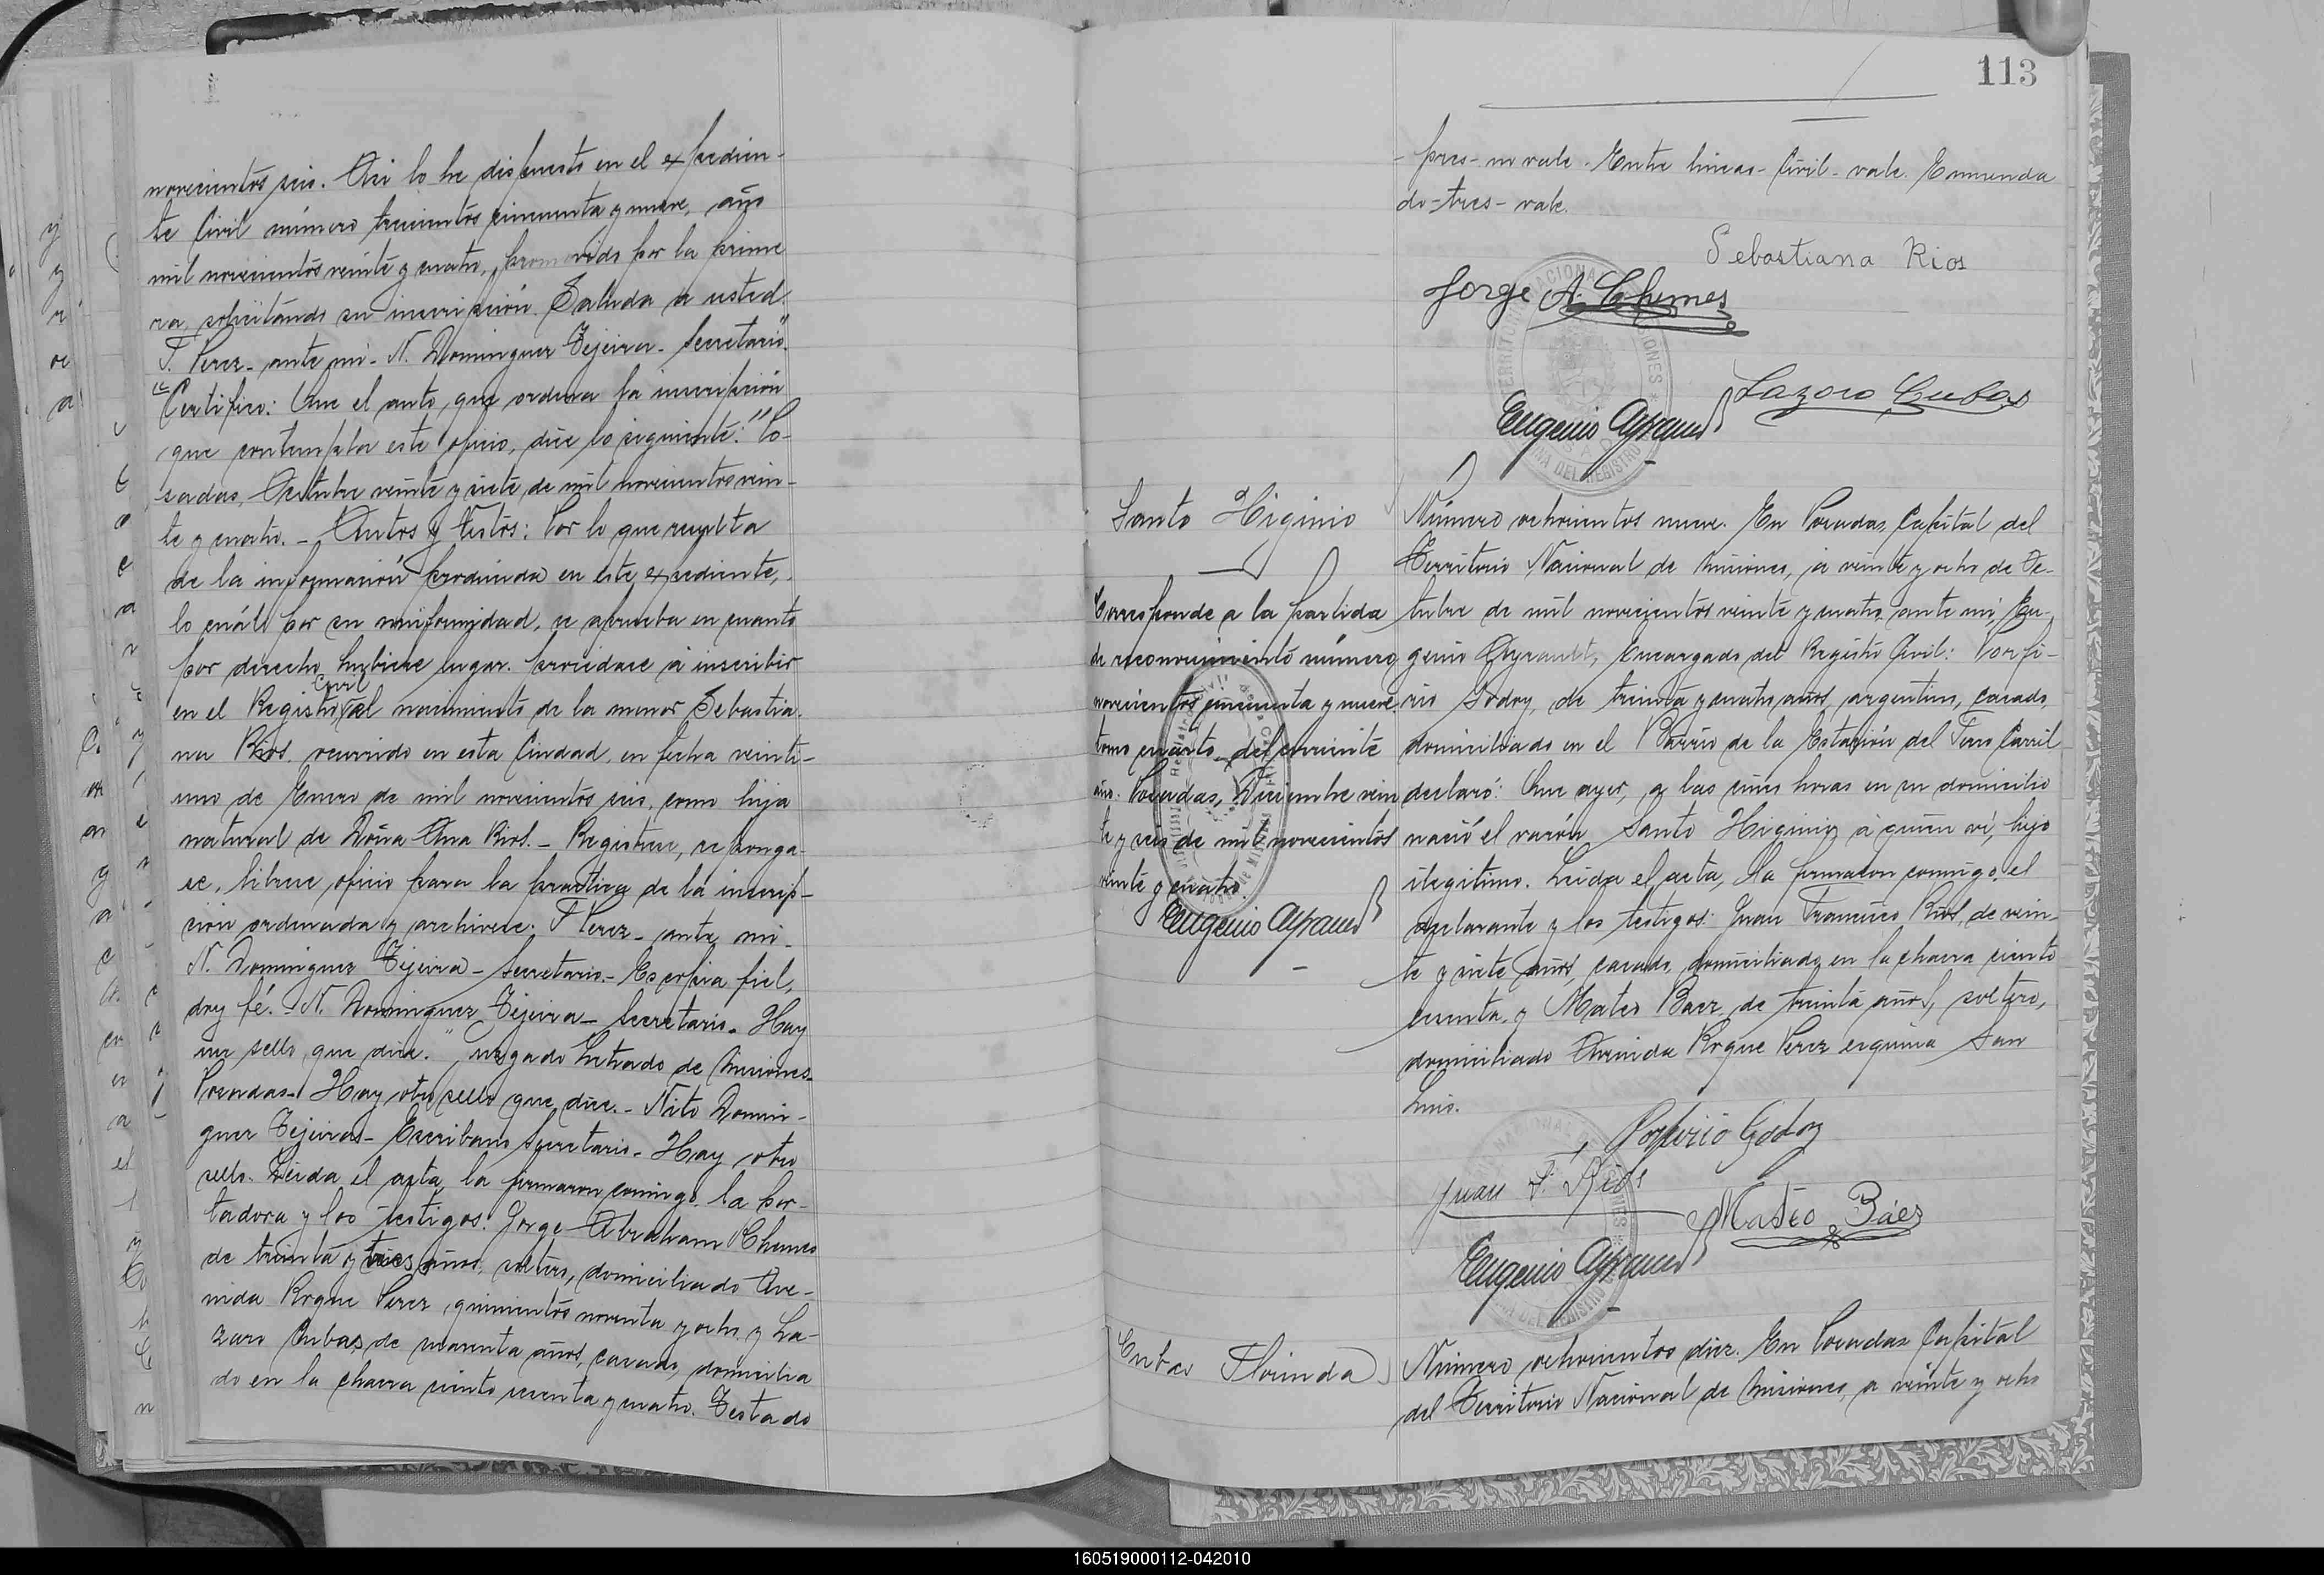 novecientos seis. Asi lo he dispuesto en el expedien-
te Civil número trescientos cincuenta y nueve, año
mil novecientos veinte y cuatro, promovido por la prime
ra, solicitando su inscripción. Saluda a usted.
T. Perez - ante mi - N. Dominguez Tejeira - Secretario"
"Certifico: Que el auto, que ordena la inscripción
que contempla este oficio, dice lo siguiente: "Po-
sadas, Octubre veinte y siete de mil novecientos vein-
te y cuatro. - Autos y Vistos: Por lo que resulta
de la información producida en este expediente,
lo cuál por su uniformidad, se aprueba en cuanto
por derecho hubiere lugar. procedase á inscribir
en el Registro Civil el nacimiento de la menor Sebastia-
na Rios, ocurrido en esta Ciudad, en fecha veinti-
uno de Enero de mil novecientos seis, como hija
natural de Doña Ana Rios. - Registrese, repónga-
se, librese oficio para la practica de la inscrip-
ción ordenada y archivese. T Perez - ante mi -
N. Dominguez Tejeira - Secretario - Es copia fiel,
doy fé. - N. Dominguez Tejeira - Secretario - Hay
un sello que dice: "Juzgado Letrado de Misiones -
Posadas - Hay otro sello que dice. - Nito Domin-
guez Tejeira - Escribano Secretario - Hay otro
sello. Leida el acta, la firmaron conmigo, la por-
tadora y los testigos: Jorge Abraham Chemes
de treinta y tres años, soltero, domiciliado Ave-
nida Roque Perez quinientos noventa y ocho y La-
zaro Cubas, de cuarenta años, casado, domicilia
do en la chacra ciento sesenta y cuatro. Testado
113
- pres - no vale. Entre lineas - Civil - vale. Enmenda
do - tres - vale.
Sebastiana Rios
Jorge A. Chemes
Lazaro Cubas
Eugenio Ayrault
Santo Higinio
Corresponde a la partida
de reconocimiento número
novecientos cincuenta y nueve
tomo cuarto del corriente
año. Posadas, Diciembre vein
te y seis de mil novecientos
veinte y cuatro.
Eugenio Ayrault
Número ochocientos nueve. En Posadas, Capital del
Territorio Nacional de Misiones, a veinte y ocho de Oc-
tubre de mil novecientos veinte y cuatro, ante mi, Eu-
genio Ayrault, Encargado del Registro Civil: Porfi-
rio Godoy, de treinta y cuatro años, argentino, casado,
domiciliado en el Barrio de la Estación del Ferro Carril
declaró: Que ayer, a las cinco horas en su domicilio
nació el varón Santo Higinio á quien ví, hijo
ilegitimo. Leida el acta, la firmaron conmigo, el
declarante y los testigos: Juan Francisco Rios, de vein-
te y siete años, casado, domiciliado en la chacra ciento
sesenta, y Mateo Baez, de treinta años, soltero,
domiciliado Avenida Roque Perez esquina San
Luis.
Porfirio Godoy
Juan F. Rios
Mateo Báez
Eugenio Ayrault
Cubas Florinda
Número ochocientos diez. En Posadas Capital
del Territorio Nacional de Misiones, a veinte y ocho
160519000112-042010